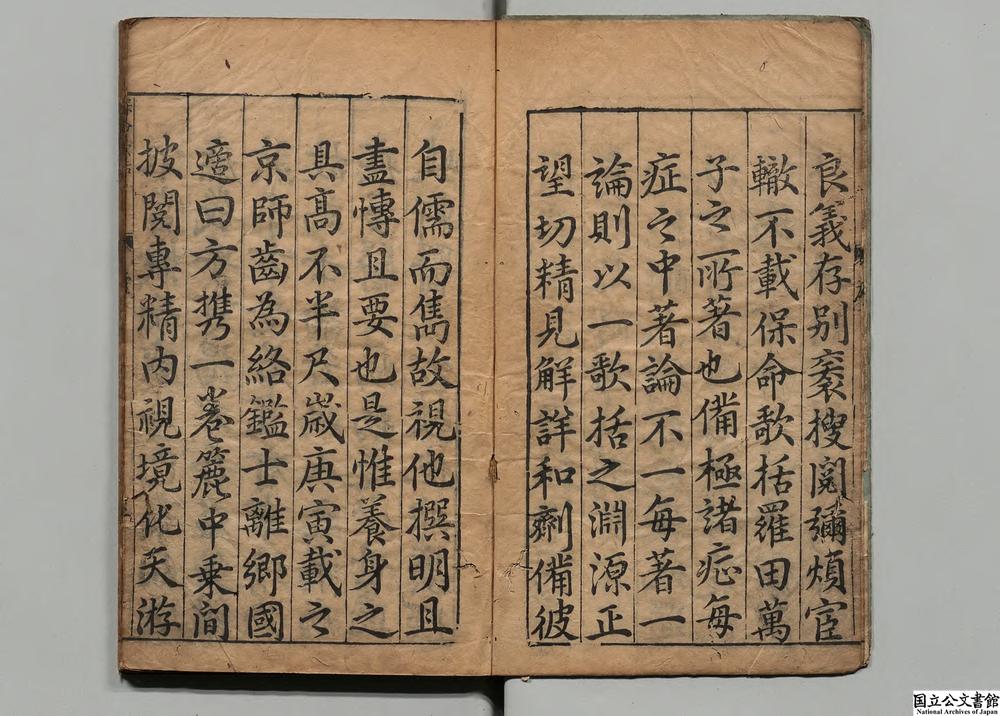 良義存别袠搜閱彌煩宦
轍不載保命歌括羅田萬
子之所著也備極諸症每
症之中著論不一每著一
論則以一歌括之淵源正
望切精見解詳和劑備彼
自儒而雋故視他撰明且
盡慱且要也是惟養身之
具高不半尺嵗庚寅載之
京師齒為絡鑑士離鄉國
適曰方携一卷簏中乗間
披閱專精内視境化天游
国立公文書館
National Archives of Japan